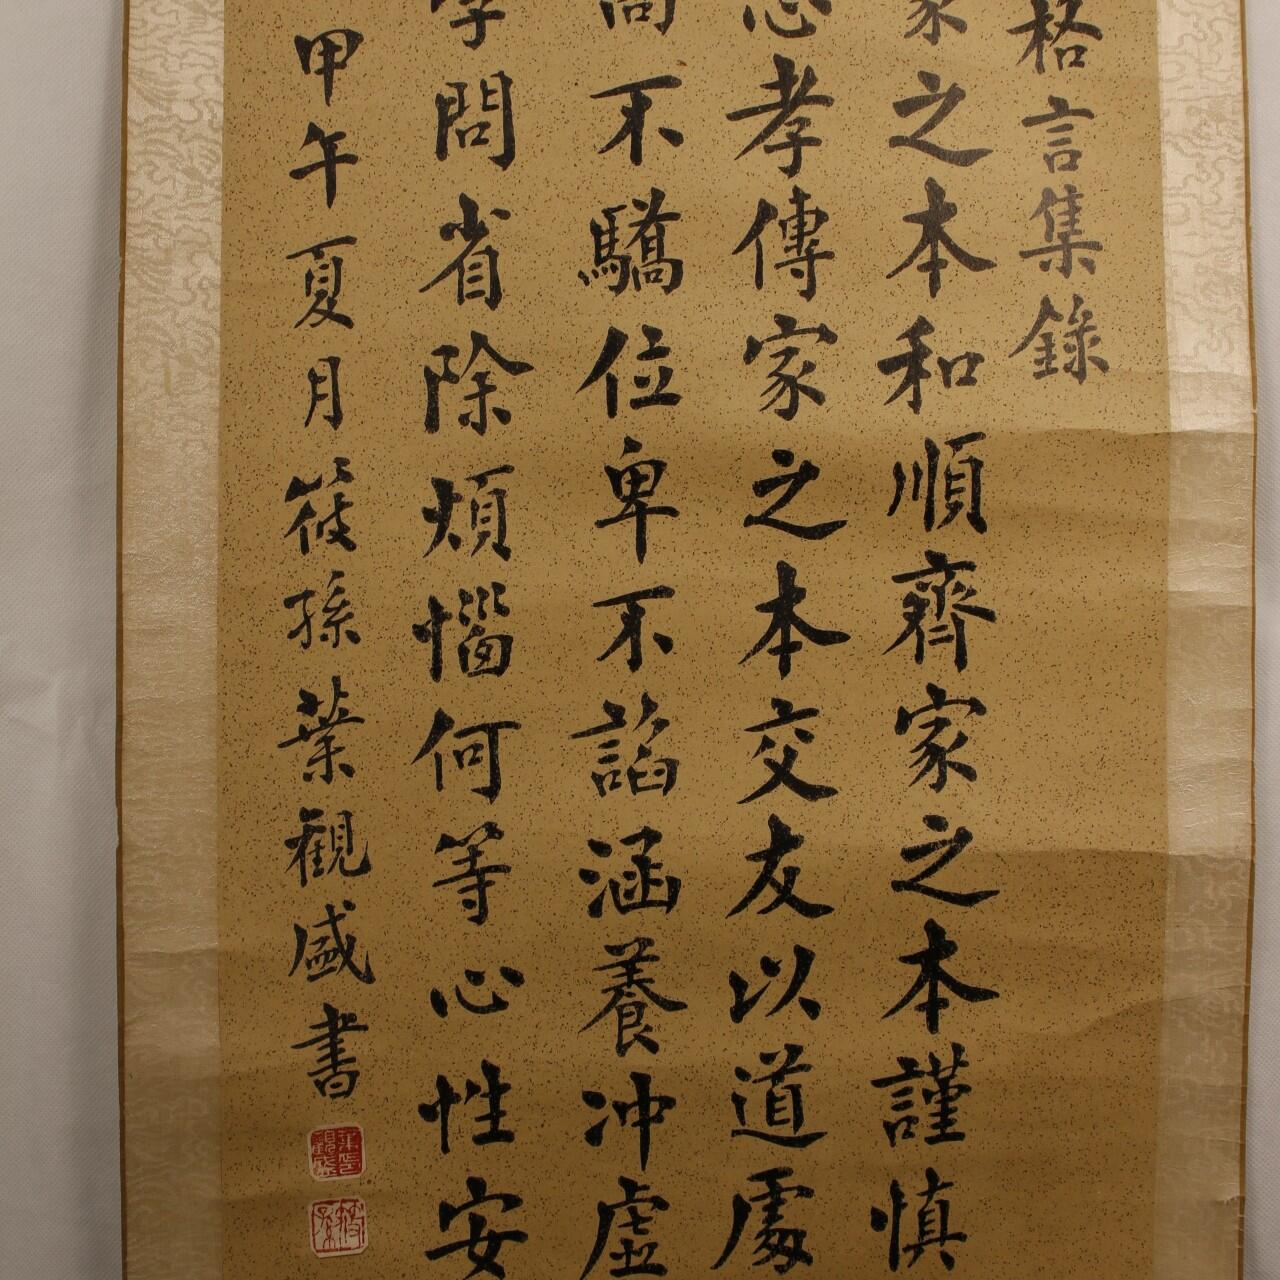 格言集錄
家之本和順齊家之本謹慎
忠孝傳家之本交友以道處
高不驕位卑不諂涵養冲虛
學問省除煩惱何等心性安
甲午夏月筱孫葉觀盛書
葉印觀盛
筱孫